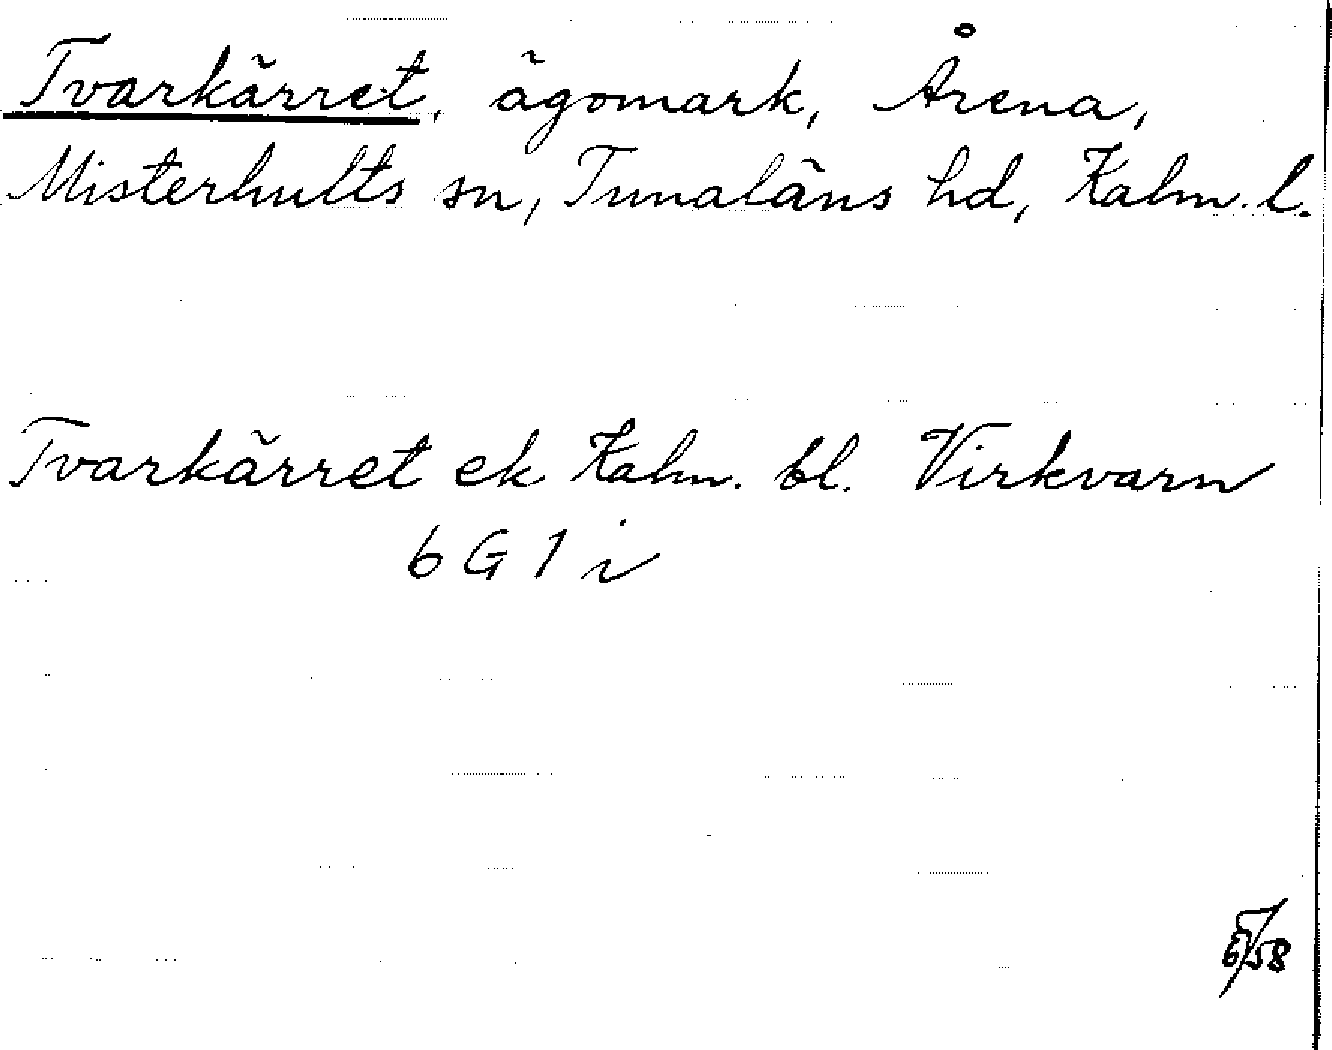 Tvarkärret, ägomark, Årena,
Misterhults sn, Tunaläns hd, Kalm. l.
Tvarkärret ek Kalm. bl. Virkvarn
6 G 1 i